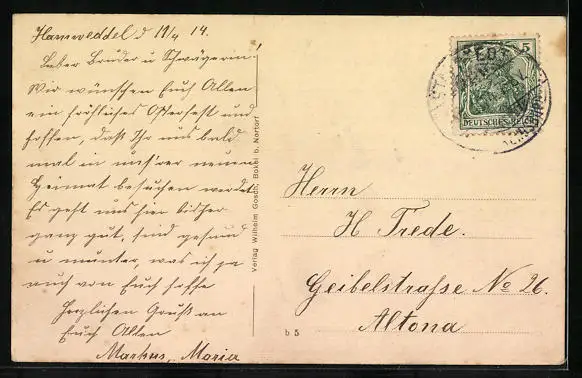 Hamweddel d 11/4 14.
Lieber Bruder u Schwägerin!
Wir wünschen Euch Allen
ein fröhliches Osterfest und
hoffen, daß Ihr uns bald
mal in unsrer neuen
Heimat besuchen werdet
Es geht uns hier bisher
ganz gut, sind gesund
u munter was ich ja
auch von Euch hoffe
Herzlichen Gruß an
Euch Allen
Markus, Maria
Verlag Wilhelm Gosch, Bokel b. Nortorf
b 5
5
DEUTSCHES REICH
Herrn
H Trede.
Geibelstraße No 26.
Altona